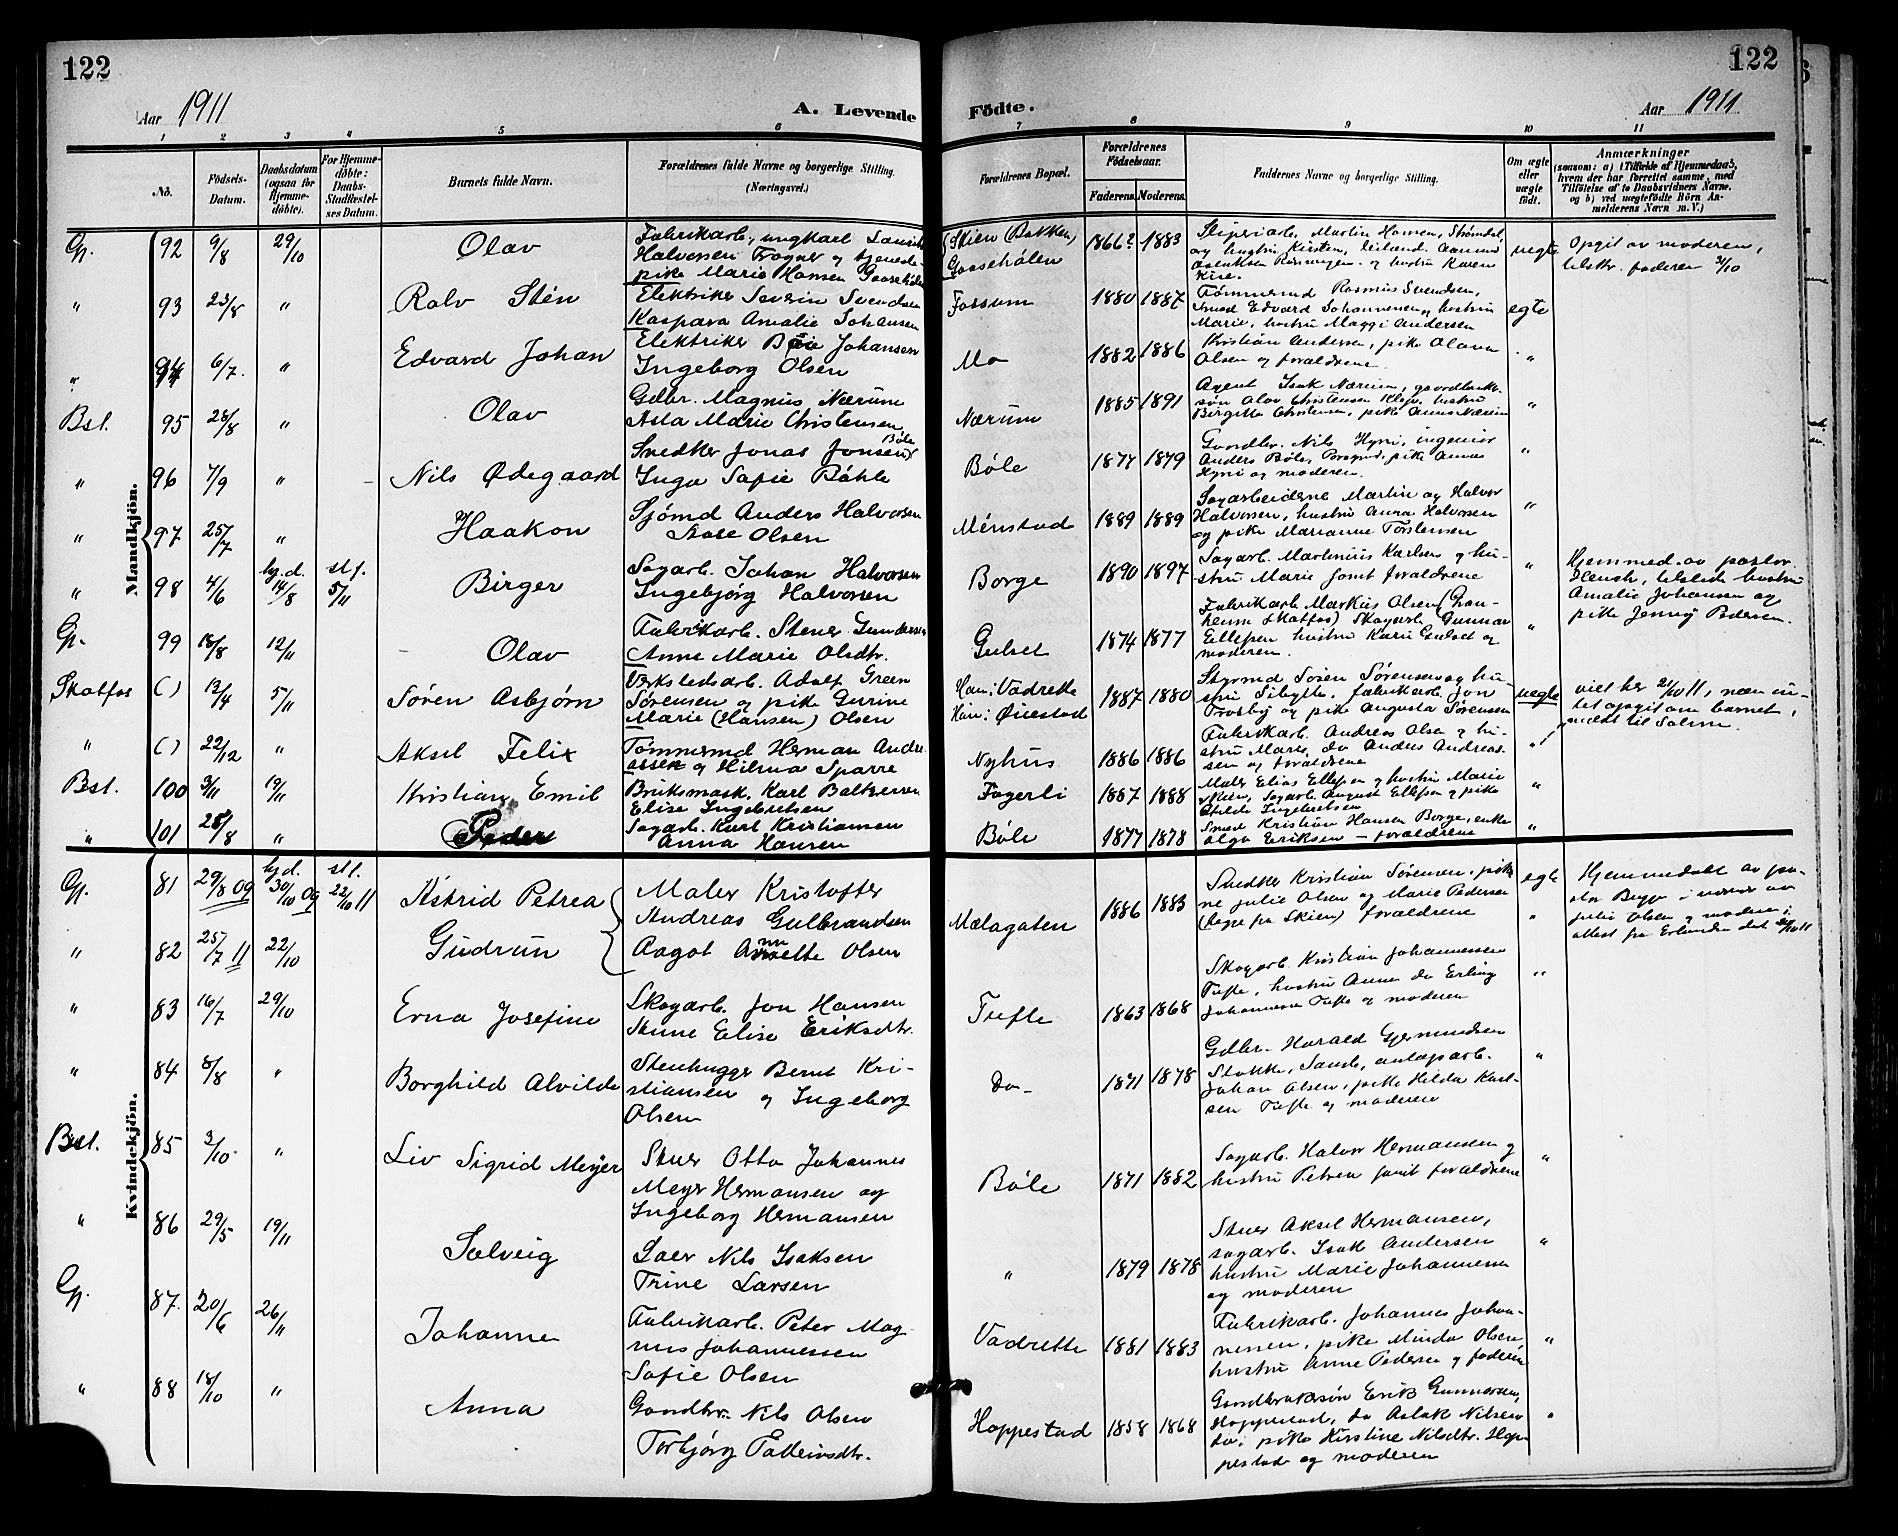 122
122
Aar 1911
A. Levende
Födte.
Aar 1911
1 2 3 4 5 6 7 8 9 10 11
No.
Födsels-Datum.
Daabsdatum (ogsaa for Hjemme-döbte).
For Hjemme-döbte: Daabs-Stadfæstel-ses Datum.
Barnets fulde Navn.
Forældrenes fulde Navne og borgerlige Stilling. (Næringsvei.)
Forældrenes Bopæl.
Forældrenes Födselsaar.
Faderens. Moderens.
Faddernes Navne og borgerlige Stilling.
Om ægte eller uægte födt.
Anmærkninger
(saasom: a) i Tilfælde af Hjemmedaab, hvem der har forrettet samme, med Tilföielse af to Daabsvidners Navne, og b) ved uægtefödte Börn An-melderens Navn m. V.)
Mandkjön.
Gp. 92 9/8 29/10 Olav
Fabrikarb., ungkarl
Halvorsen Fragner og tjeneste-
pike Marie Hansen Gaasehölen
(Skien (Bakken) Gaasehölen 1866? 1883
Sliperiarb. Martin Hansen, Strömdal,
og hustru Kirsten,
uegte
Opgit av moderen,
tilstr. faderen 31/10
" 93 23/8 " Ralv Stén
Elektriker Severin Svendsen
Kaspara Amalie Johansen
Fossum 1880 1887
Tömmermd Rasmus Svendsen,
Smed Edvard Johannesen, hustru
Marie, hustru Maggi Andersen
egte
" 94 6/7 " Edvard Johan
Elektriker Johansen
Ingeborg Olsen
Mo 1882 1886
Kristian Andersen, pike Olava
Olsen og forældrene.
"
Bst. 95 28/8 " Olav
Gdbr. Magnus Nærum
Asta Marie Christensen
Nærum 1885 1891
Agent Isak Nærum, gaardbruker-
søn Olav Christensen Klep, hustru
Birgitte Christensen, pike Anna Nærum
"
" 96 7/9 " Nils Ødegaard
Snedker Jonas Jonsen Böle
Inga Sofie Böhle
Böle 1877 1879
Gaardbr. Nils Hyni, ingeniør
Anders Böle, Porsgrund, pike Anna
Hyni og moderen.
"
" 97 25/7 " Haakon
Sjömd Anders Halvorsen
Aase Olsen
Menstad 1889 1889
Sagarbeiderne Martin og Halvor
Halvorsen, hustru Anna Halvorsen
og pike Marianne Torstensen
"
" 98 4/6 hj.d. 14/8 st.f. 5/11 Birger
Sagarb. Johan Halvorsen
Ingebjörg Halvorsen
Borge 1890 1897
Sagarb. Martinius Karlsen og hu-
stru Marie samt forældrene
"
Hjemmed. av pastor
tilstede hustru
Amalie Johansen og
pike Jenny Pedersen.
Gp. 99 18/8 12/11 Olav
Fabrikarb. Stener Gundersen
Anne Marie Olsdtr.
Gulset 1874 1877
Fabrikarb. Markus Olsen (Gran-
heim Skotfos) Skogarb. Gunnar
Ellefsen hustru Karen Gulset og
moderen.
"
Skotfos ( ) 12/4 5/11 Sören Asbjörn
Verkstedsarb. Adolf Green
Sörensen og pike Gurine
Marie (Hansen) Olsen
Han: Vadrette
Hun: Øvestad
1887 1880
Styrmd Sören Sörensen og hu-
stru Sibylle, fabrikarb. Jon
Trosby og pike Augusta Sörensen
uegte
viet her 21/10 11, men in-
tet opgit om barnet,
meldt til Solum.
" ( ) 22/12 " Aksel Felix
Tömmermd Herman Andre-
assen og Hilma Sparre
Nyhus 1886 1886
Fabrikarb. Andreas Olsen og hu-
stru Marie, do Anders Andreas-
sen og forældrene
"
Bst. 100 3/11 19/11 Kristian Emil
Bruksmask. Karl Baltzersen
Elise Ingebretsen
Fagerli 1887 1888
Maler Elias Ellefsen og hustru Marie
Skien, Sagarb. August Ellefsen og pike
Ingebretsen
"
" 101 28/8 " Peder
Sagarb. Karl Kristiansen
Anna Hansen
Böle 1877 1878
Smed Kristian Hansen Borge, enke
Olga Eriksen – forældrene
"
Kvindekjön.
Gp. 81 29/8 09 hj.d. 30/10 09 st.f. 22/10 11 Astrid Petrea
" 82 25/7 11 22/10 Gudrun
Maler Kristoffer
Andreas Gulbrandsen
Aagot Annette Olsen
Mælagaten 1886 1883
Snedker Kristian Sörensen, pik
ne Julie Olsen og Marie Pedersen
(begge fra Skien) forældrene
egte
"
Hjemmedöbt av pa-
stor
Julie Olsen og moderen,
attest fra
" 83 16/7 29/10 Erna Josefine
Skogarb. Jon Hansen
Stine Elise Eriksdtr.
Tufte 1863 1868
Skogarb. Kristian Johannessen
Tufte, hustru Anna do Erling
Johannesen Tufte og moderen
"
" 84 8/8 " Borghild Alvilde
Stenhugger Bernt Kri-
stiansen og Ingeborg
Olsen
Do- 1871 1878
Gdbr. Harald Gjermundsen
Stokke, Sande, anlægsarb.
Johan Olsen, pike Hilda Karl-
sen Tufte og moderen
"
Bst. 85 3/10 " Liv Sigrid Meyer
Stuer Otto Johannes
Meyer Hermansen og
Ingeborg Hermansen
Böle 1871 1882
Sagarb. Halvor Hermansen og
hustru Petrea samt forældrene
"
" 86 29/5 19/11 Solveig
Loer Nils Isaksen
Trine Larsen
" 1879 1878
Stuer Aksel Hermansen,
sagarb. Isak Andersen
hustru Marie Johannesen
og moderen
"
Gp. 87. 20/6 26/11 Johanne
Fabrikarb. Peter Mag-
nus Johannessen
Sofie Olsen
Vadrette 1881 1883
Fabrikarb. Johannes Johan-
nessen, pike Minda Olsen
hustru Anne Pedersen og faderen
"
" 88 18/10 " Anna
Gaardbr. Nils Olsen
Torbjörg Tallevsdtr.
Hoppestad 1858 1868
Gaardbrukersön Erik Gunnarsen,
Hoppestad, do Aslak Nilsen
do; pike Kirstine Nilsdtr. Hop-
pestad og moderen
"